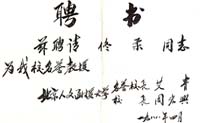 聘书
兹聘请 佟柔 同志
为我校名誉教授
北京人文函授大学名誉校长 艾青
校长
一九八八年四月